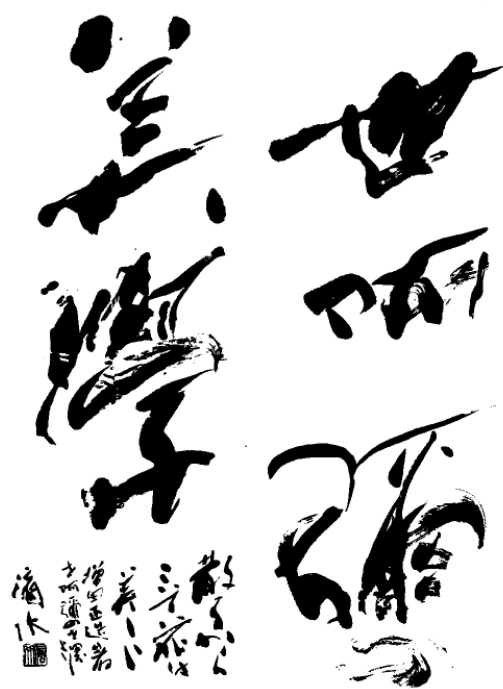 世阿彌
美學
散るから
こそ花は
美しい
増田正造著
世阿彌